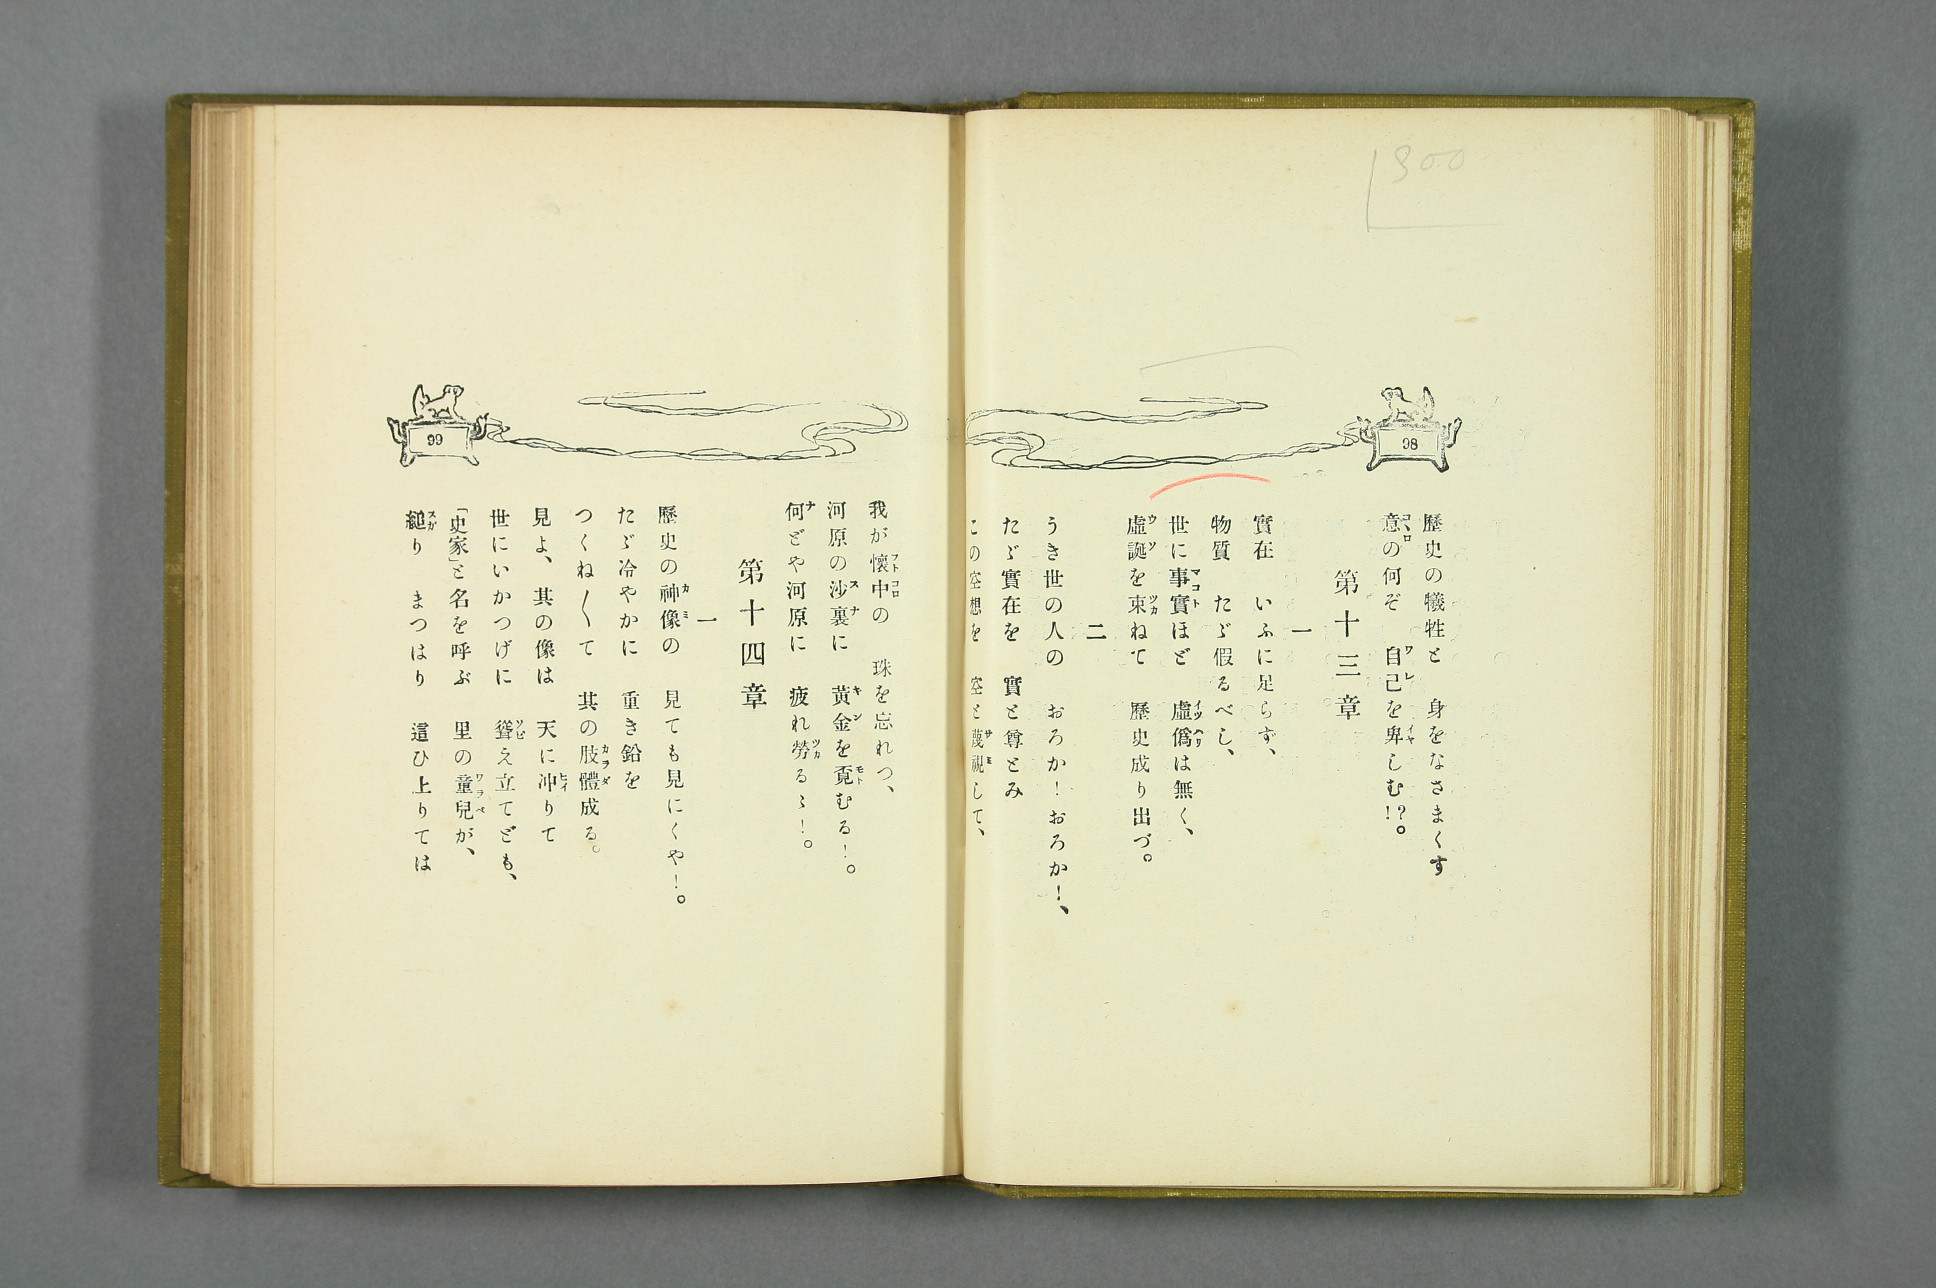 1800
98
歴史の犠牲と　身をなさまくす
意の何ぞ　自己を卑しむ！？。
第十三章
一
實在　いふに足らず、
物質　たゞ假るべし、
世に事實ほど　虛僞は無く、
虛誕を束ねて　歴史成り出づ。
二
うき世の人の　おろか！おろか！、
たゞ實在を　實と尊とみ
この空想を　空と蔑視して、
99
我が懷中の　珠を忘れつ、
河原の沙裏に　黄金を覔むる！。
何どや河原に　疲れ勞るゝ！。
第十四章
一
歴史の神像の　見ても見にくや！。
たゞ冷やかに　重き鉛を
つくね〳〵て　其の肢體成る。
見よ、其の像は　天に冲りて
世にいかつげに　聳え立てども、
「史家」と名を呼ぶ　里の童兒が、
縋り　まつはり　這ひ上りては